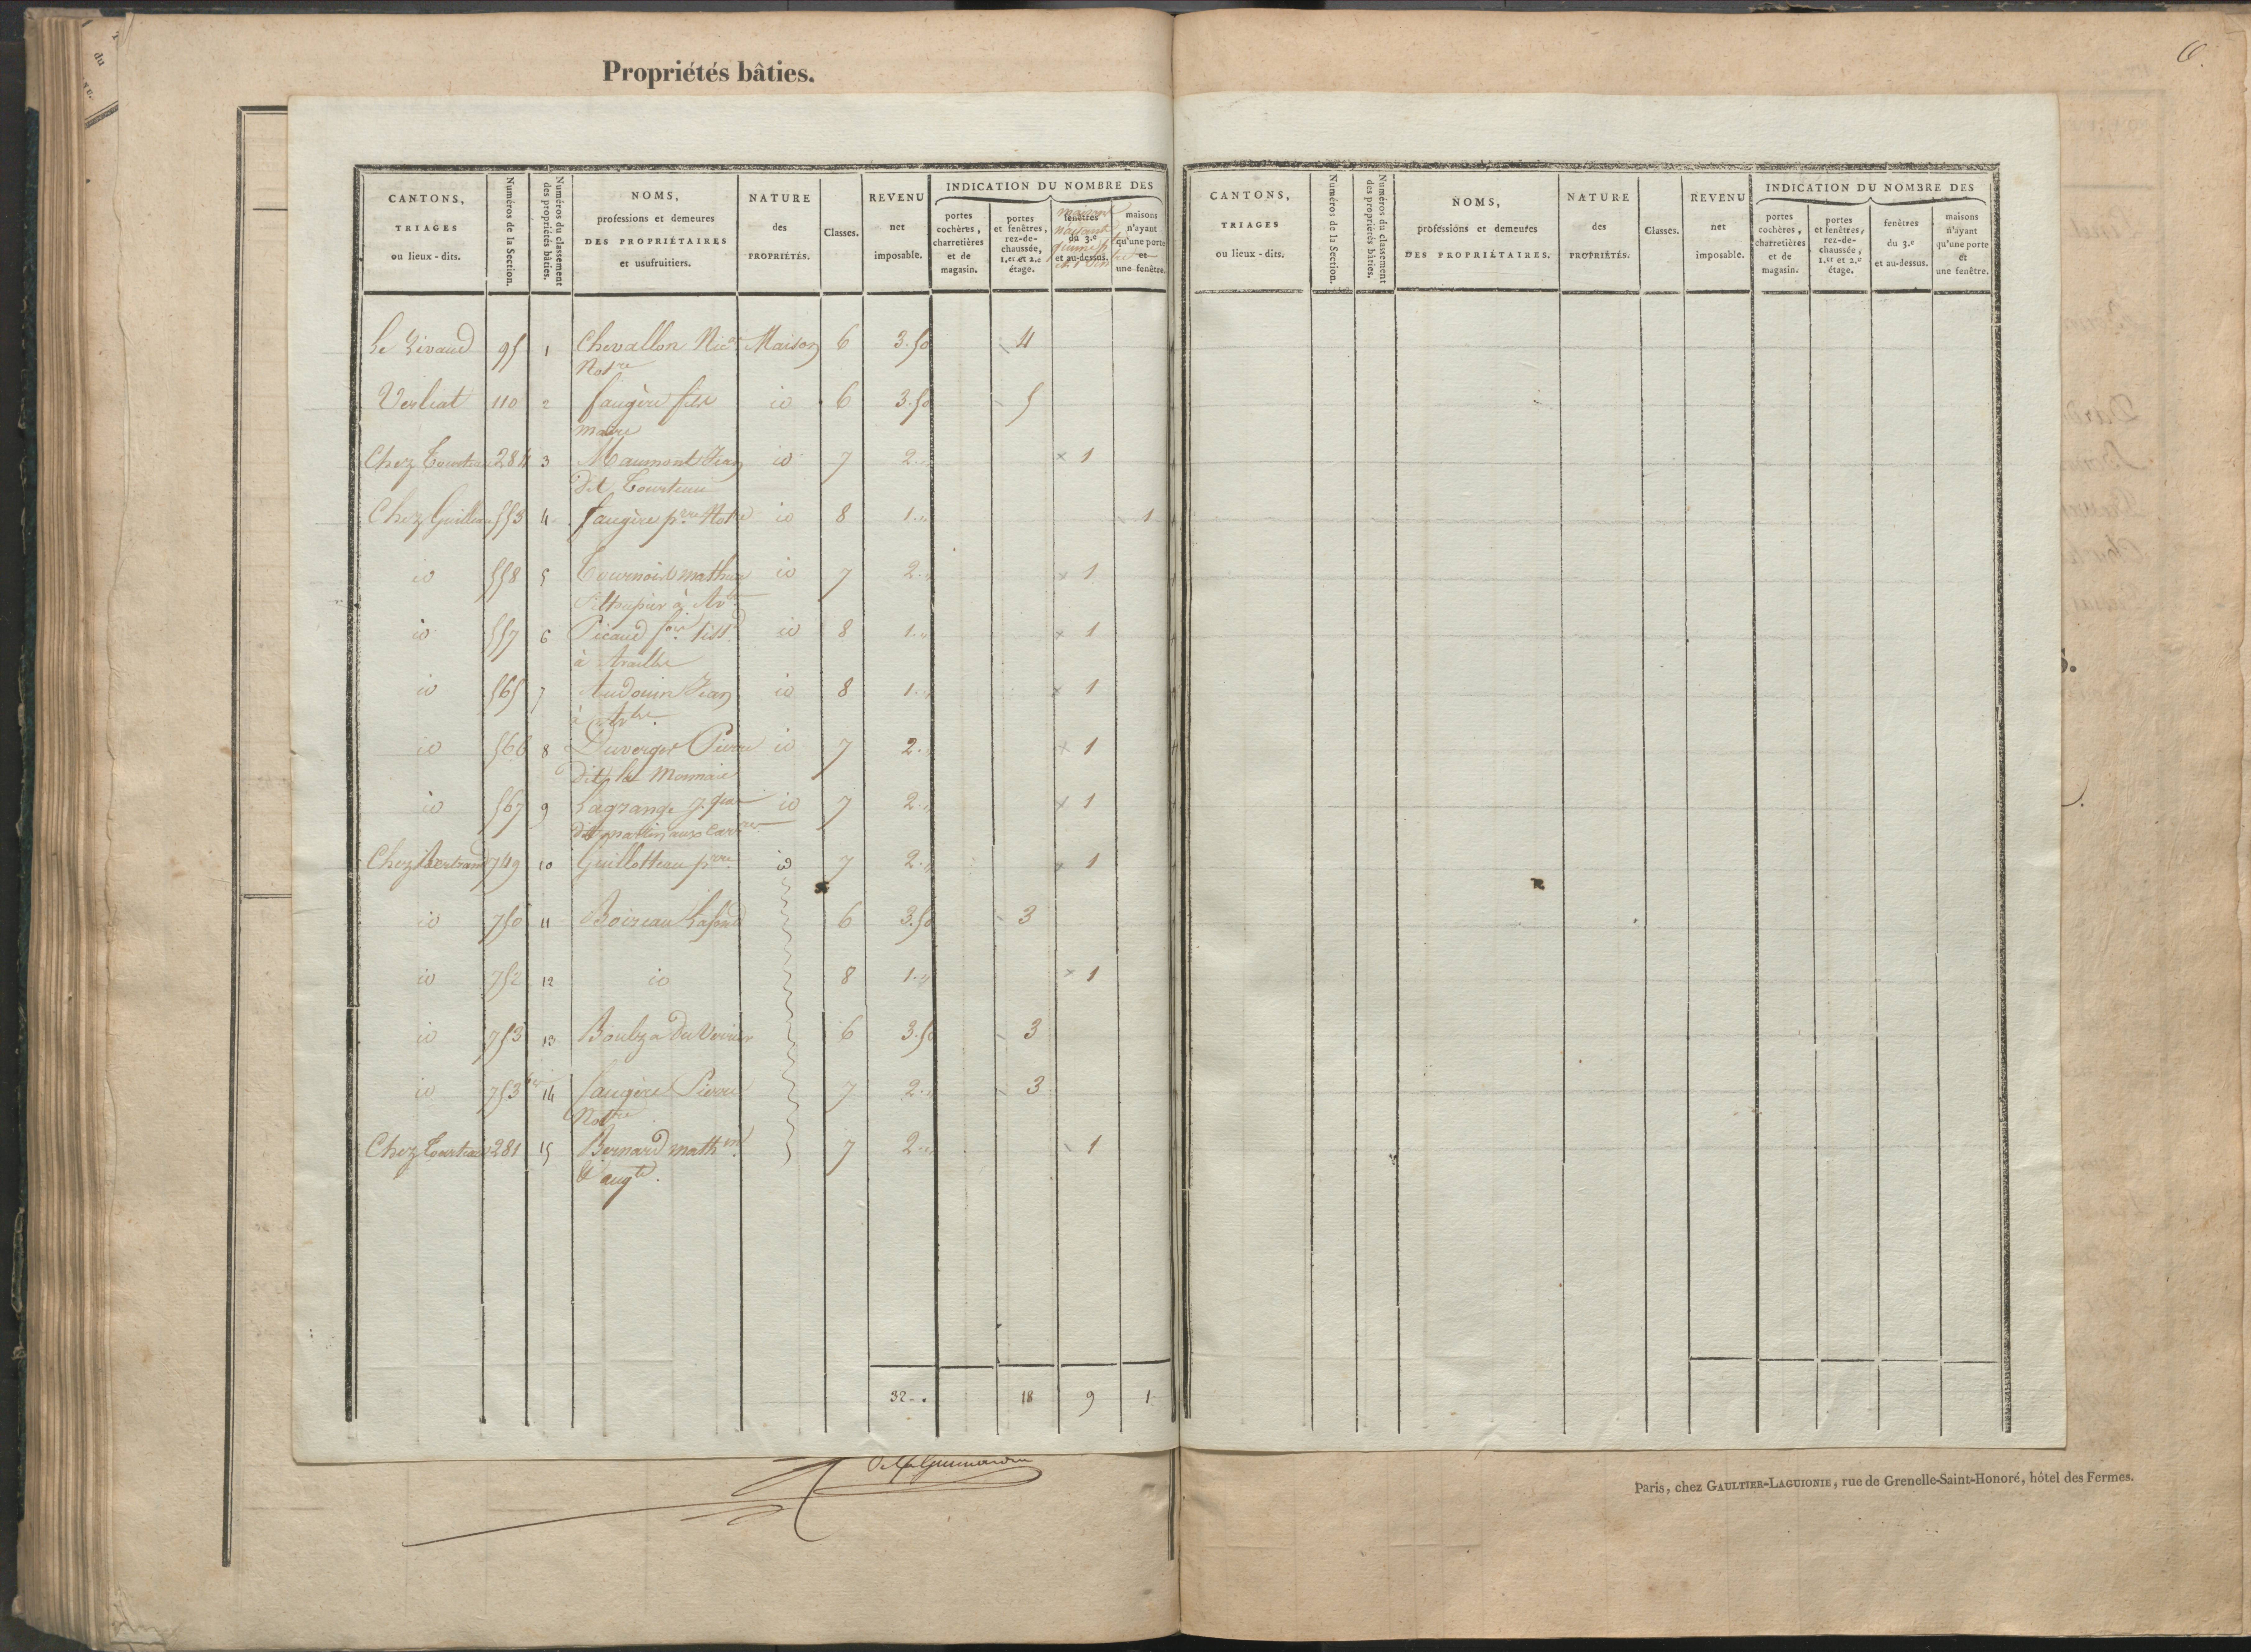 Propriétés bâties.
6.
CANTONS, TRIAGES ou lieux-dits. Numéros de la Section. Numéros du classement des propriétés bâties. NOMS, professions et demeures DES PROPRIÉTAIRES et usufruitiers. NATURE des PROPRIÉTÉS. Classes. REVENU net imposable. INDICATION DU NOMBRE DES
portes cochères, charretières et de magasin. portes et fenêtres, rez-de-chaussée, 1.er et 2.e étage. fenêtres du 3.e et au-dessus. maisons n'ayant qu'une porte et une fenêtre.
95 1 Chevallon Nic.s Maison 6 3.50 4
Not.re
Verliat 110 2 faugère fils io 6 3.50 5
maire
Chez 284 3 Maumont Jean io 7 2.. 1
dit
Chez 553 4 faugère p.re Not.re io 8 1.. 1
io 558 5 io 7 2.. 1
io 557 6 Picaud io 8 1.. 1
à
io 565 7 Audouin Jean io 8 1.. 1
à
io 566 8 Duverger Pierre io 7 2.. 1
dit la Monnaie
io 567 9 Lagrange io 7 2.. 1
dit
Chez Bertrand 749 10 Guillotteau p.re io 7 2.. 1
io 750 11 Boireau Lafond 6 3.50 3
io 752 12 io 8 1.. 1
io 753 13 6 3.50 3
io 753 14 faugère Pierre 7 2.. 3
Not.re
Chez 281 15 Bernard math.in 7 2.. 1
& aug.te.
32 18 9 1
CANTONS, TRIAGES ou lieux-dits. Numéros de la Section. Numéros du classement des propriétés bâties. NOMS, professions et demeures DES PROPRIÉTAIRES. NATURE des PROPRIÉTÉS. Classes. REVENU net imposable. INDICATION DU NOMBRE DES
portes cochères, charretières et de magasin. portes et fenêtres, rez-de-chaussée, 1.er et 2.e étage. fenêtres du 3.e et au-dessus. maisons n'ayant qu'une porte et une fenêtre.
Paris, chez GAULTIER-LAGUIONIE, rue de Grenelle-Saint-Honoré, hôtel des Fermes.